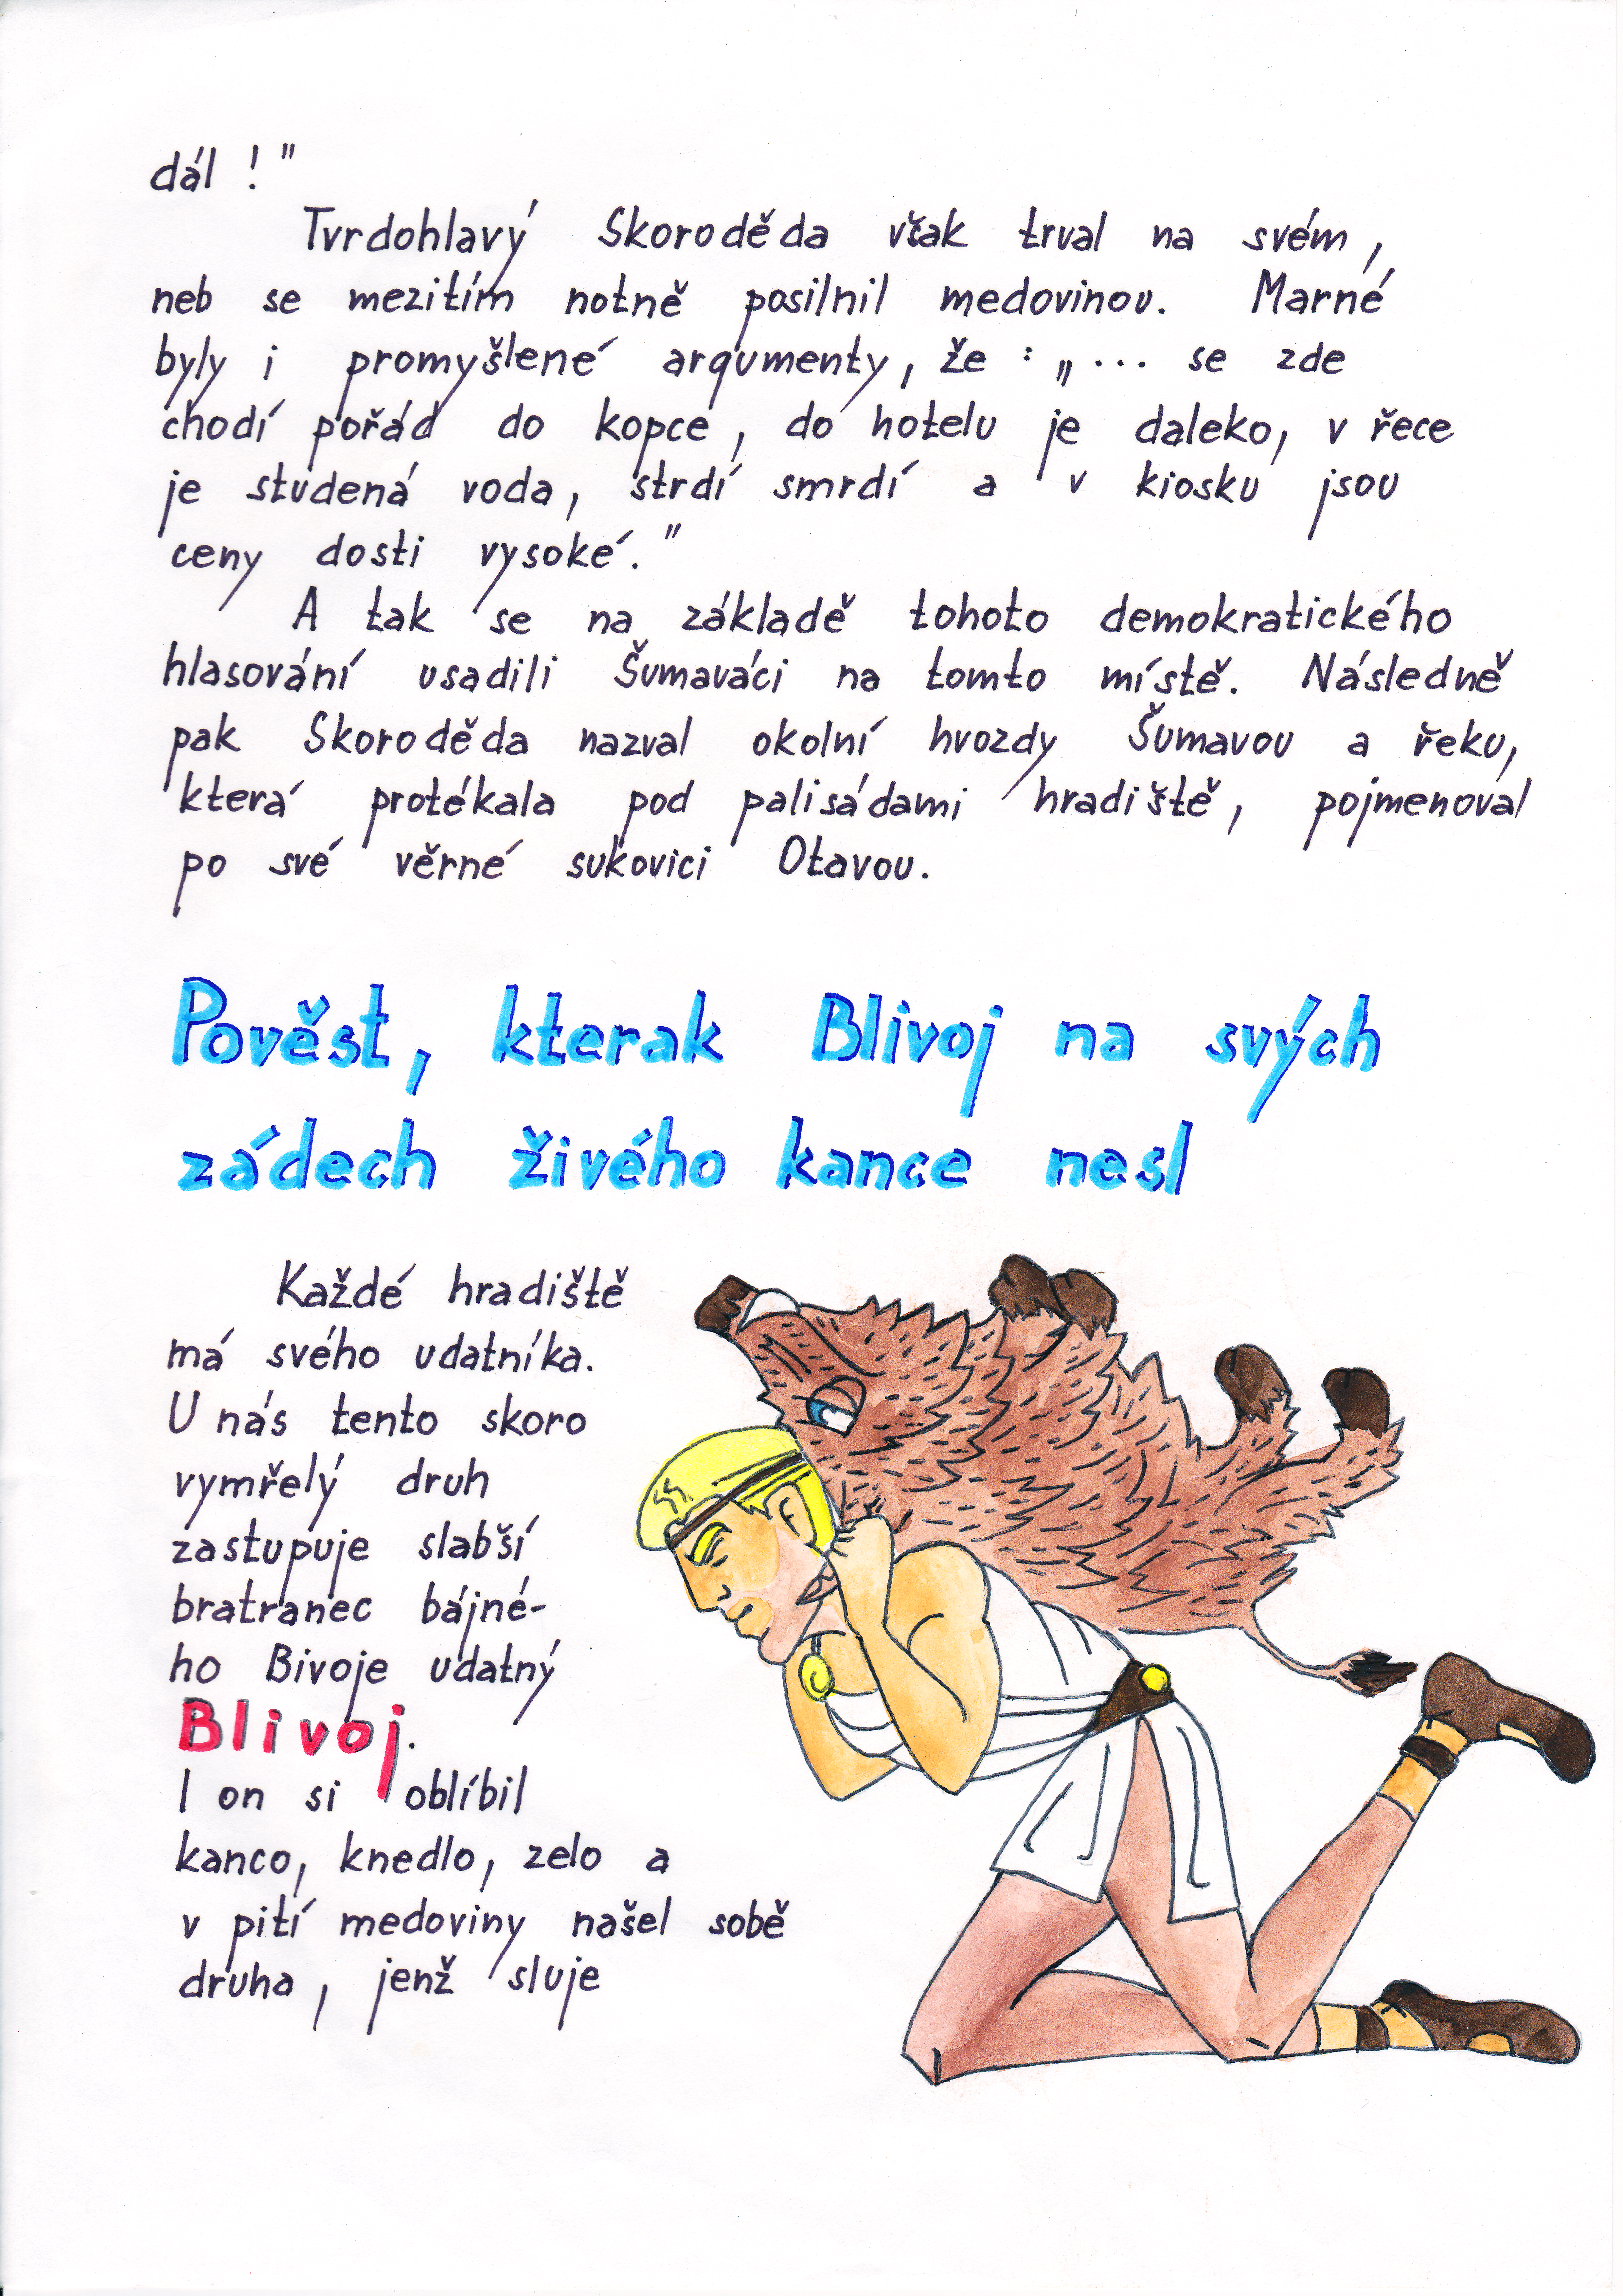 dál !"
Tvrdohlavý Skoroděda však trval na svém,
neb se mezitím notně posilnil medovinou. Marné
byly i promyšlené argumenty, že : „... se zde
chodí pořád do kopce, do hotelu je daleko, v řece
je studená voda, strdí smrdí a v kiosku jsou
ceny dosti vysoké."
A tak se na základě tohoto demokratického
hlasování usadili Šumaváci na tomto místě. Následně
pak Skoroděda nazval okolní hvozdy Šumavou a řeku,
která protékala pod palisádami hradiště, pojmenoval
po své věrné sukovici Otavou.
Pověst, kterak Blivoj na svých
zádech živého kance nesl
Každé hradiště
má svého udatníka.
U nás tento skoro
vymřelý druh
zastupuje slabší
bratranec bájné-
ho Bivoje udatný
Blivoj.
I on si oblíbil
kanco, knedlo, zelo a
v pití medoviny našel sobě
druha, jenž sluje